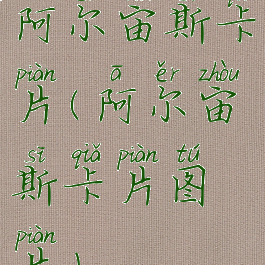 阿尔宙斯卡
piàn ā ěr zhòu
片(阿尔宙
sī qiǎ piàn tú
斯卡片图
piàn
片)